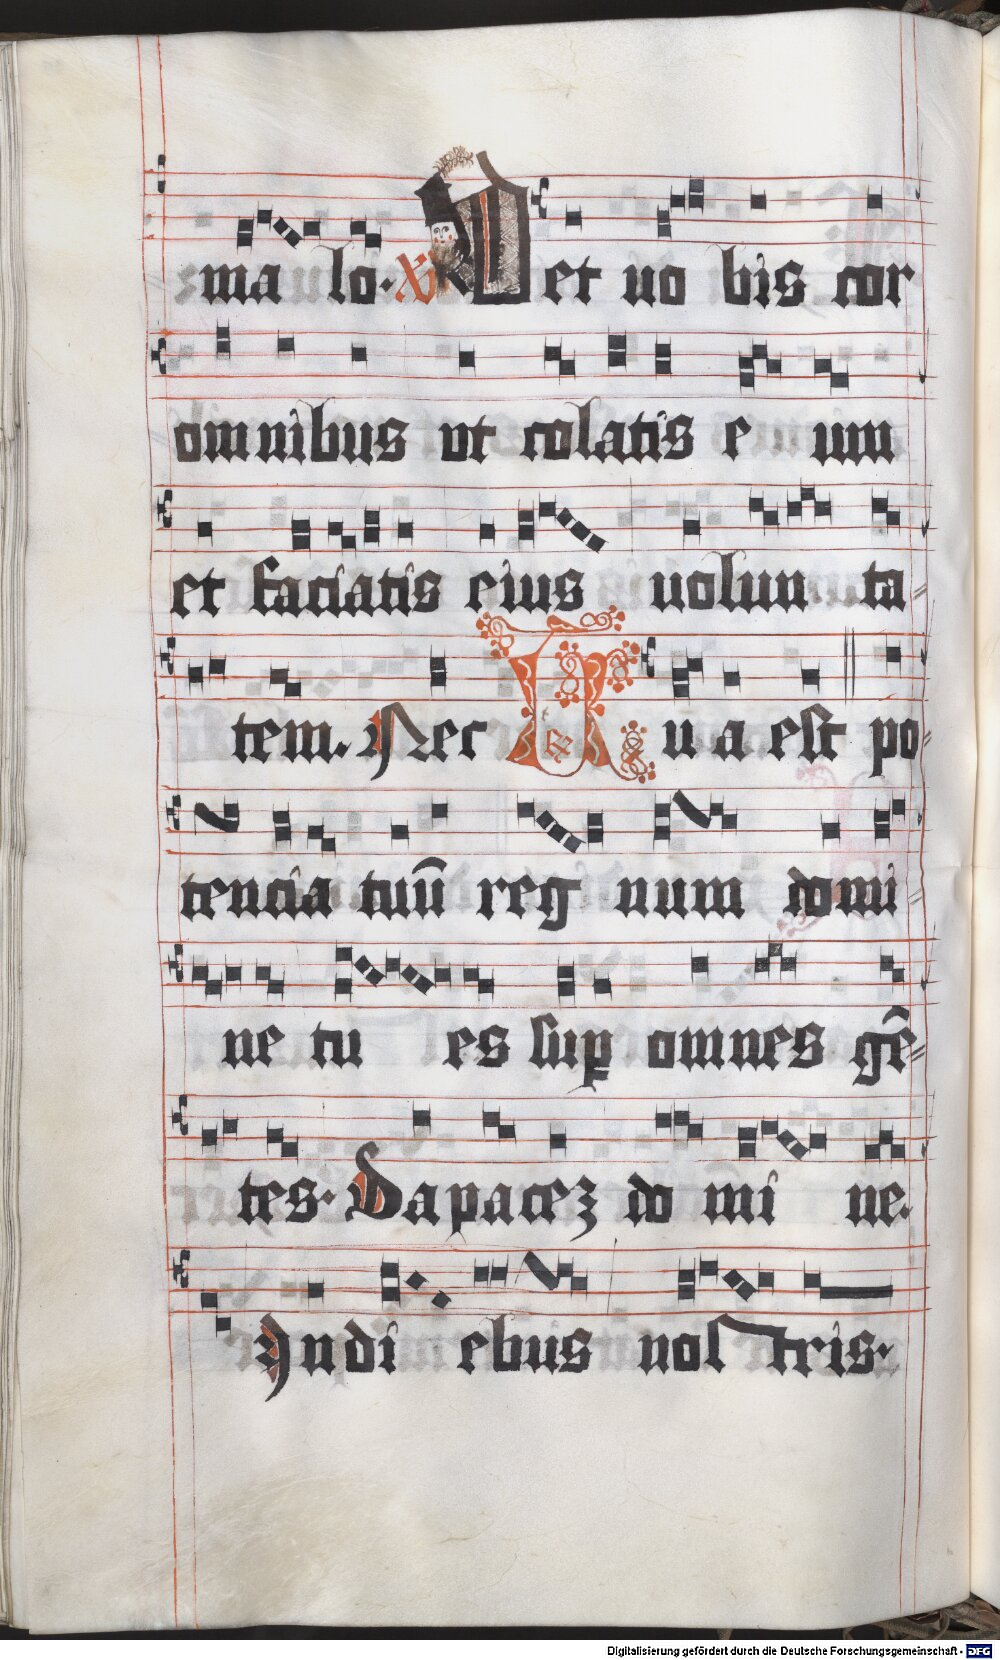 ma lo. ℣ Det uo bis cor
omnibus ut colatis e um
et faciatis eius volun ta
tem. Nec Tu a est po
tencia tuū reg num domi
ne tu es sup omnes gē
tes. Da pacez do mi ne.
In di ebus nos tris.
Digitalisierung gefördert durch die Deutsche Forschungsgemeinschaft - DFG